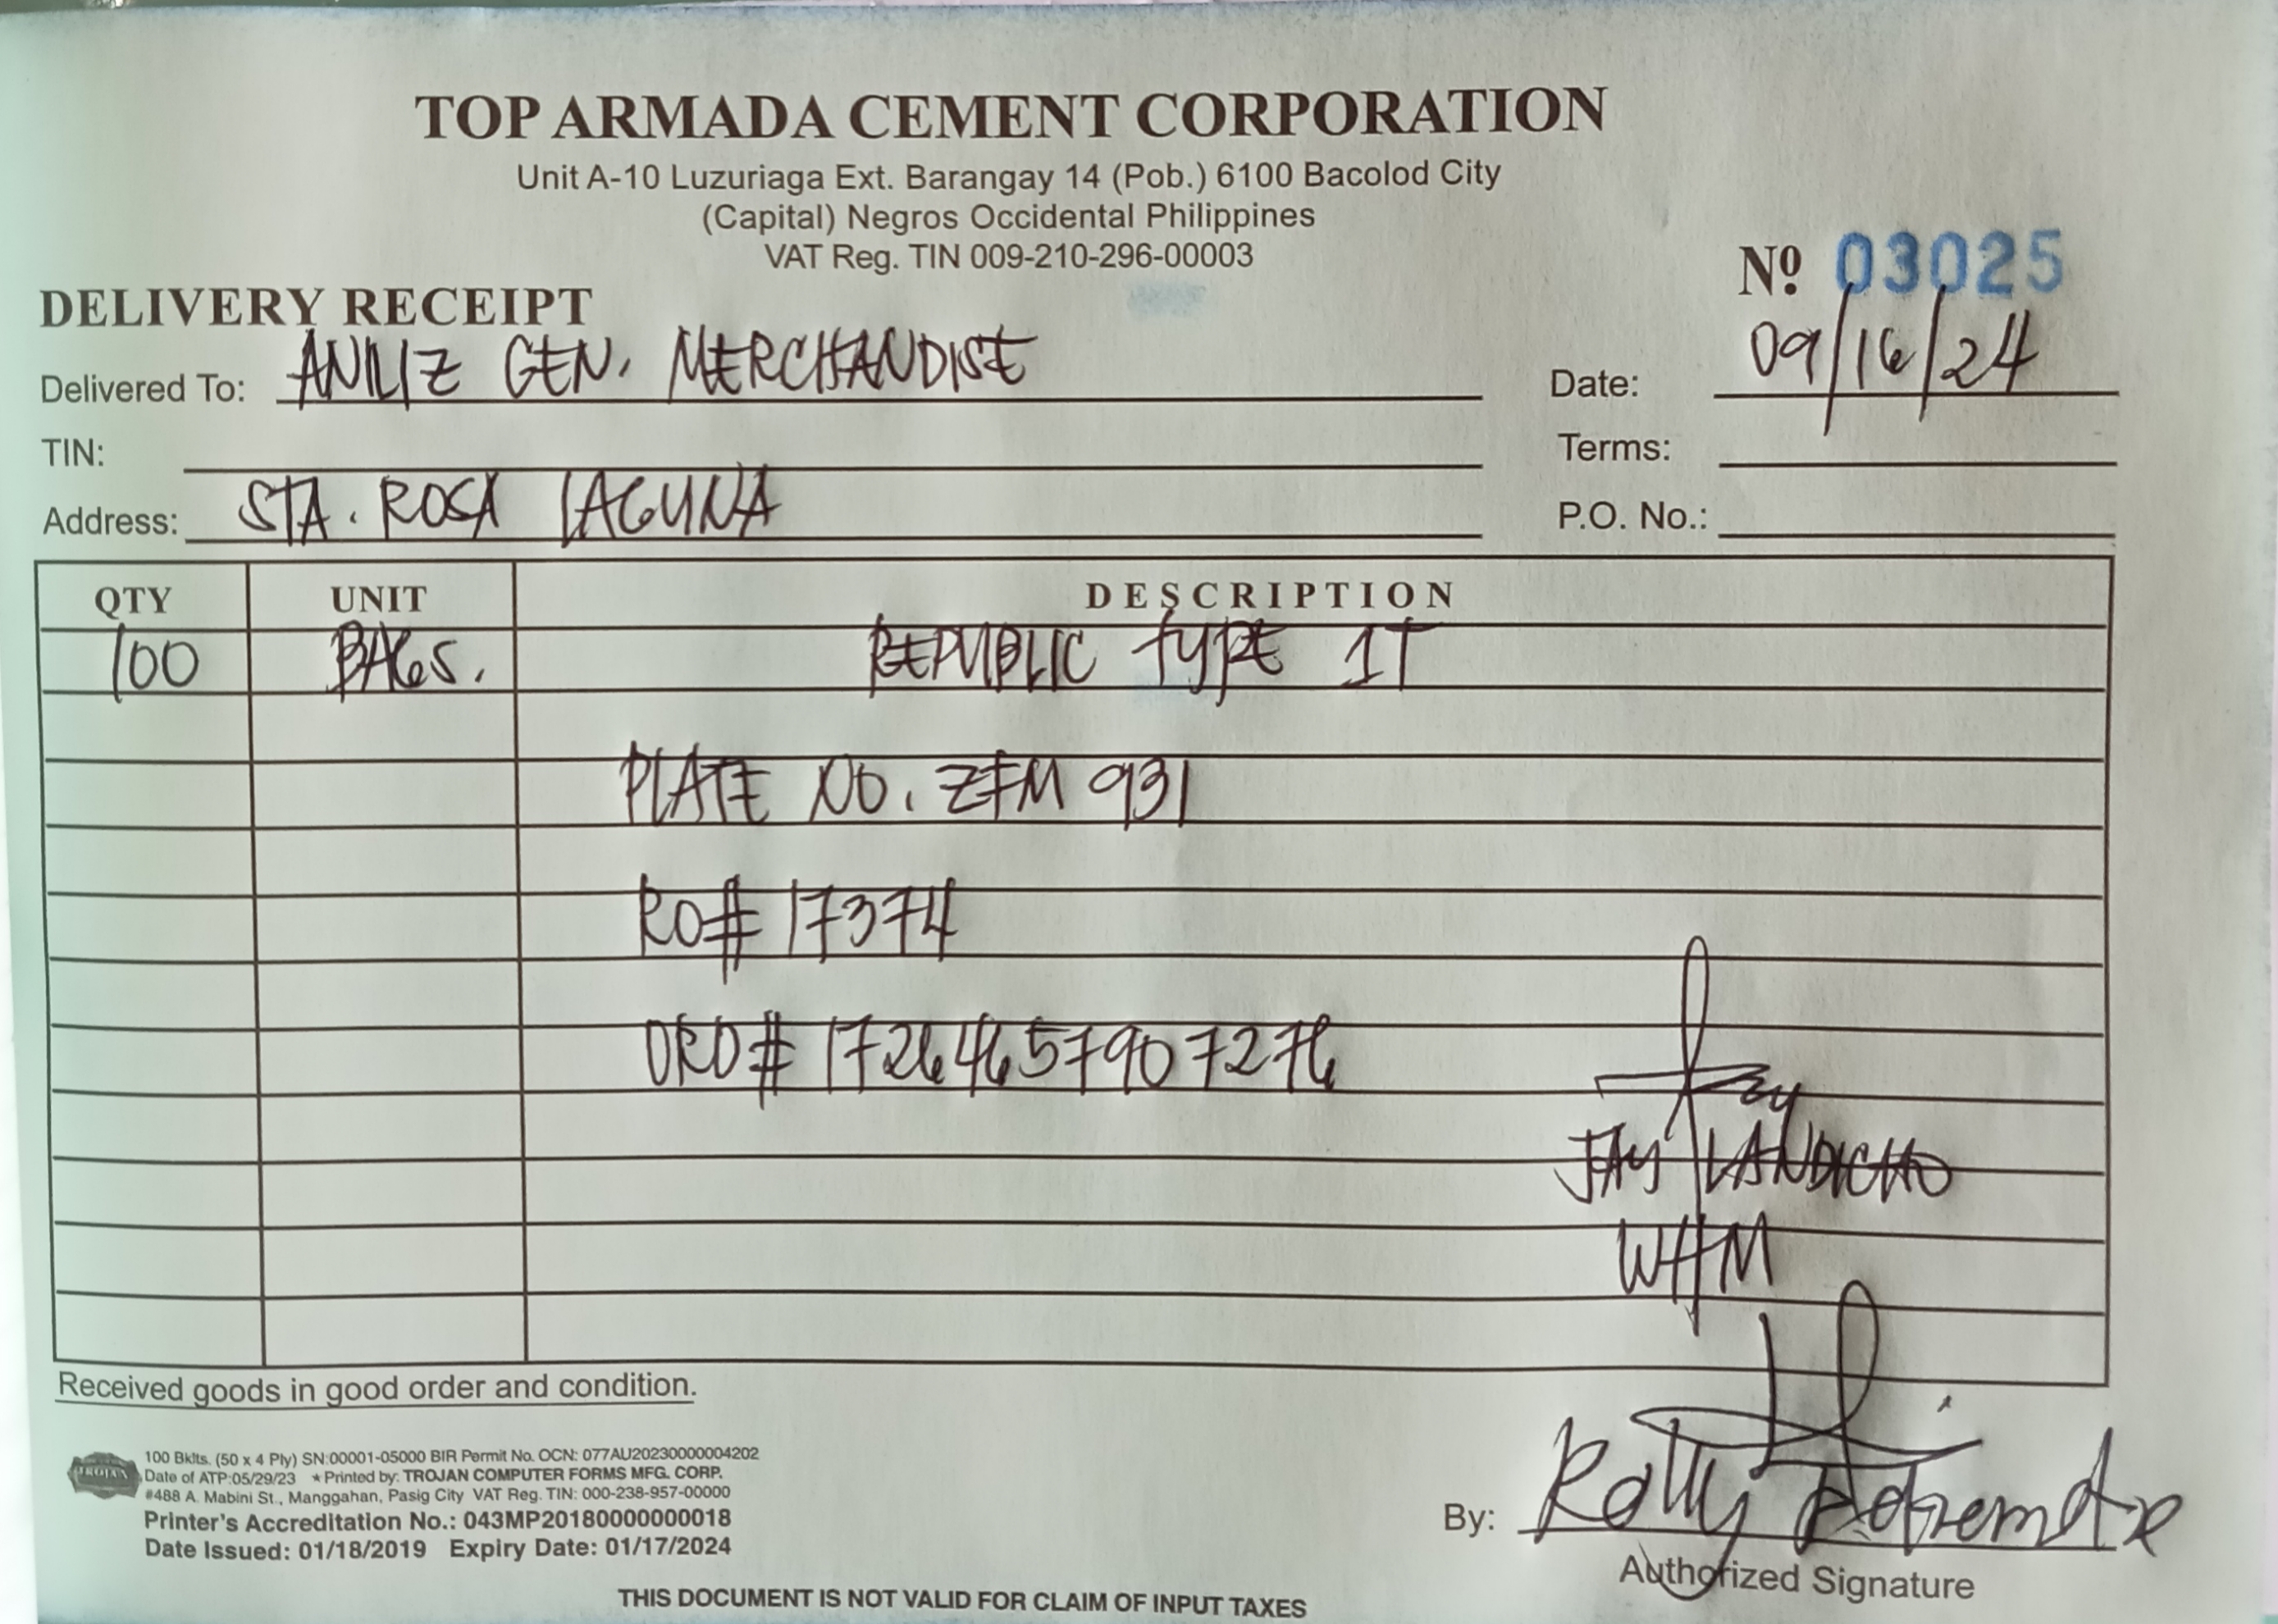 TOP ARMADA CEMENT CORPORATION
Unit A-10 Luzuriaga Ext. Barangay 14 (Pob.) 6100 Bacolod City
(Capital) Negros Occidental Philippines
VAT Reg. TIN 009-210-296-00003
Nº 03025
DELIVERY RECEIPT
Delivered To: ANILIZ GEN. MERCHANDISE
Date: 09/16/24
TIN:
Terms:
Address: STA. ROSA LAGUNA
P.O. No.:
QTY UNIT DESCRIPTION
100 BAGS. REPUBLIC TYPE 1T
PLATE NO. ZFM 931
RO# 17374
ORD# 17264657907276
JAY LANDICHO
WHM
Received goods in good order and condition.
TROJAN
100 Bklts. (50 x 4 Ply) SN:00001-05000 BIR Permit No. OCN: 077AU20230000004202
Date of ATP:05/29/23 ★Printed by: TROJAN COMPUTER FORMS MFG. CORP.
#488 A. Mabini St., Manggahan, Pasig City VAT Reg. TIN: 000-238-957-00000
Printer's Accreditation No.: 043MP20180000000018
Date Issued: 01/18/2019 Expiry Date: 01/17/2024
By: Rolly
Authorized Signature
THIS DOCUMENT IS NOT VALID FOR CLAIM OF INPUT TAXES